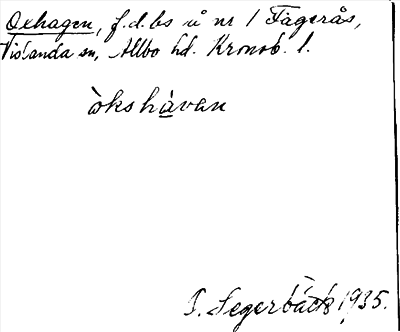 Oxhagen, f.d. bs å nr 1 Fägerås,
Vislanda sn, Allbo hd. Kronob. l.
òkshàvan
I. Segerbäck 1935.